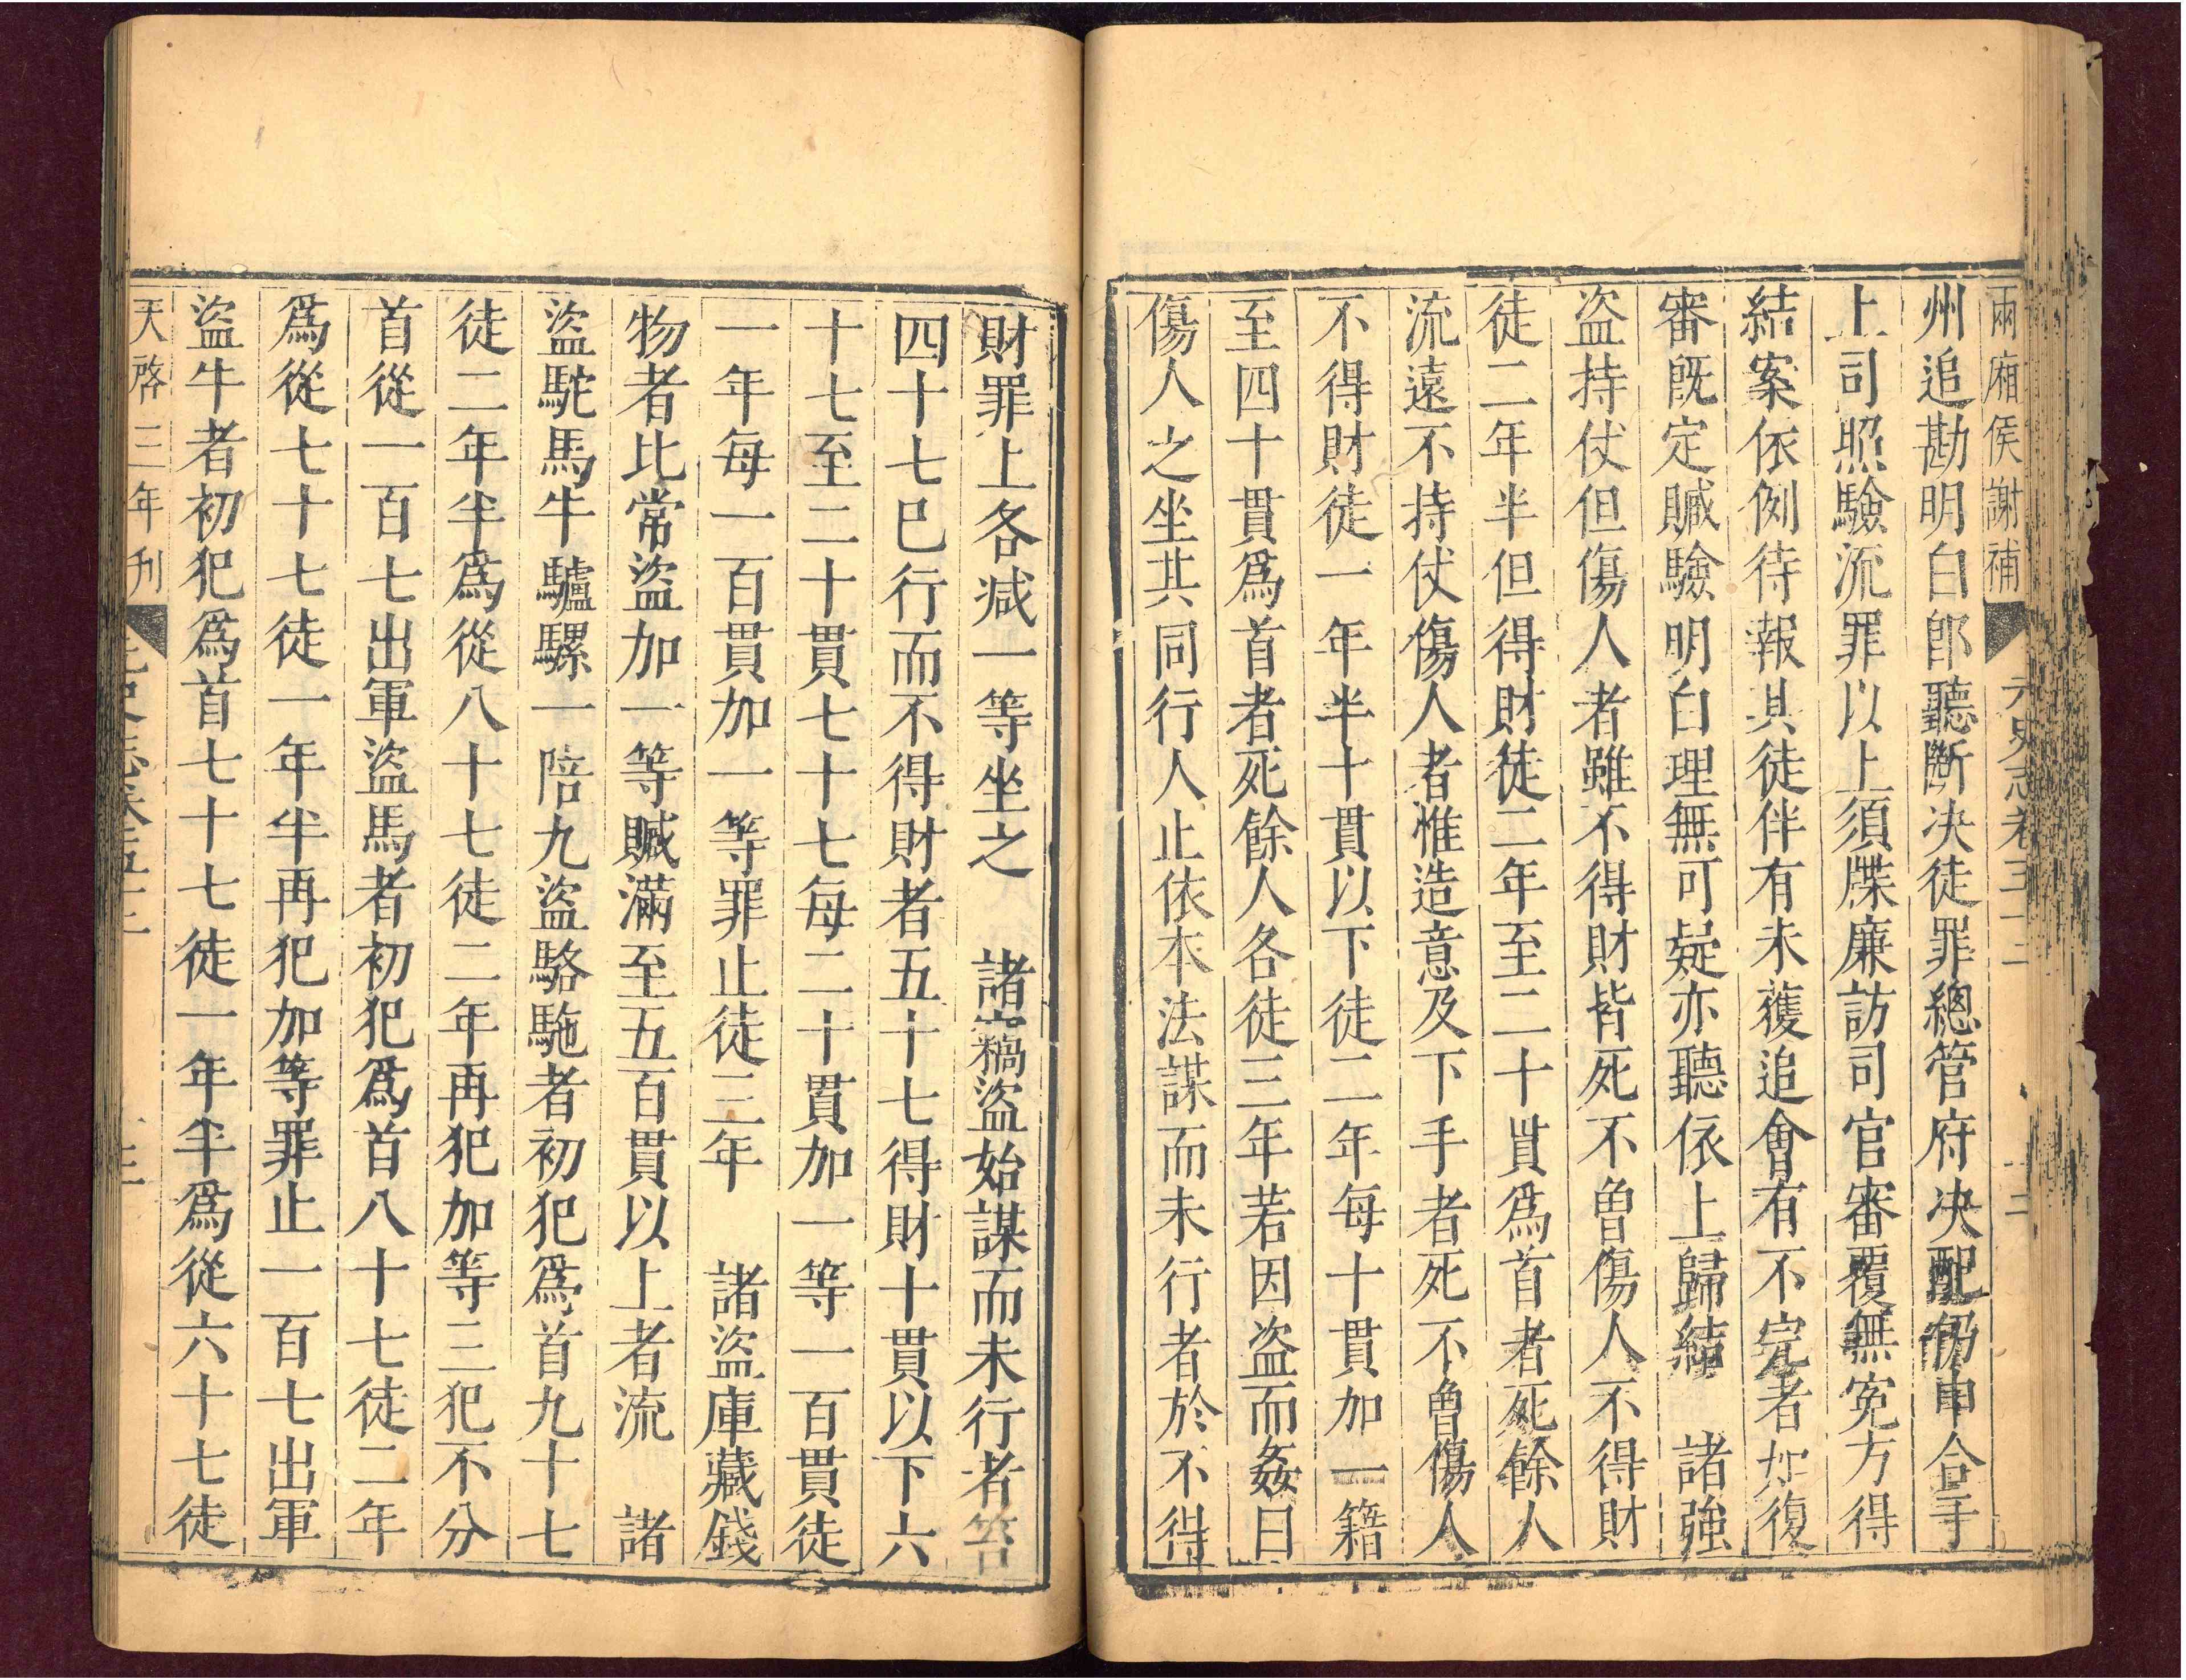 兩廂侯謝補 元史志卷五十二 二
州追勘明白郎聽斷决徒罪總管府决配仍申合手
上司照驗流罪以上須牒廉訪司官審覆無寃方得
結案依例待報其徒伴有未獲追會有不完者如復
審旣定贓驗明白理無可疑亦聽依上歸結 諸強
盗持仗但傷人者雖不得財皆死不曾傷人不得財
徒二年半但得財徒二年至二十貫爲首者死餘人
流遠不持仗傷人者惟造意及下手者死不曾傷人
不得財徒一年半十貫以下徒二年每十貫加一籍
至四十貫爲首者死餘人各徒三年若因盗而姦曰
傷人之坐其同行人止依本法謀而未行者於不得
財罪上各减一等坐之 諸竊盜始謀而未行者笞
四十七巳行而不得財者五十七得財十貫以下六
十七至二十貫七十七每二十貫加一等一百貫徒
一年每一百貫加一等罪止徒三年 諸盜庫藏錢
物者比常盜加一等贓滿至五百貫以上者流 諸
盜駝馬牛驢騾一陪九盜駱駞者初犯爲首九十七
徒二年半爲從八十七徒二年再犯加等三犯不分
首從一百七出軍盜馬者初犯爲首八十七徒二年
爲從七十七徒一年半再犯加等罪止一百七出軍
盜牛者初犯爲首七十七徒一年半爲從六十七徒
天啓三年刋 三